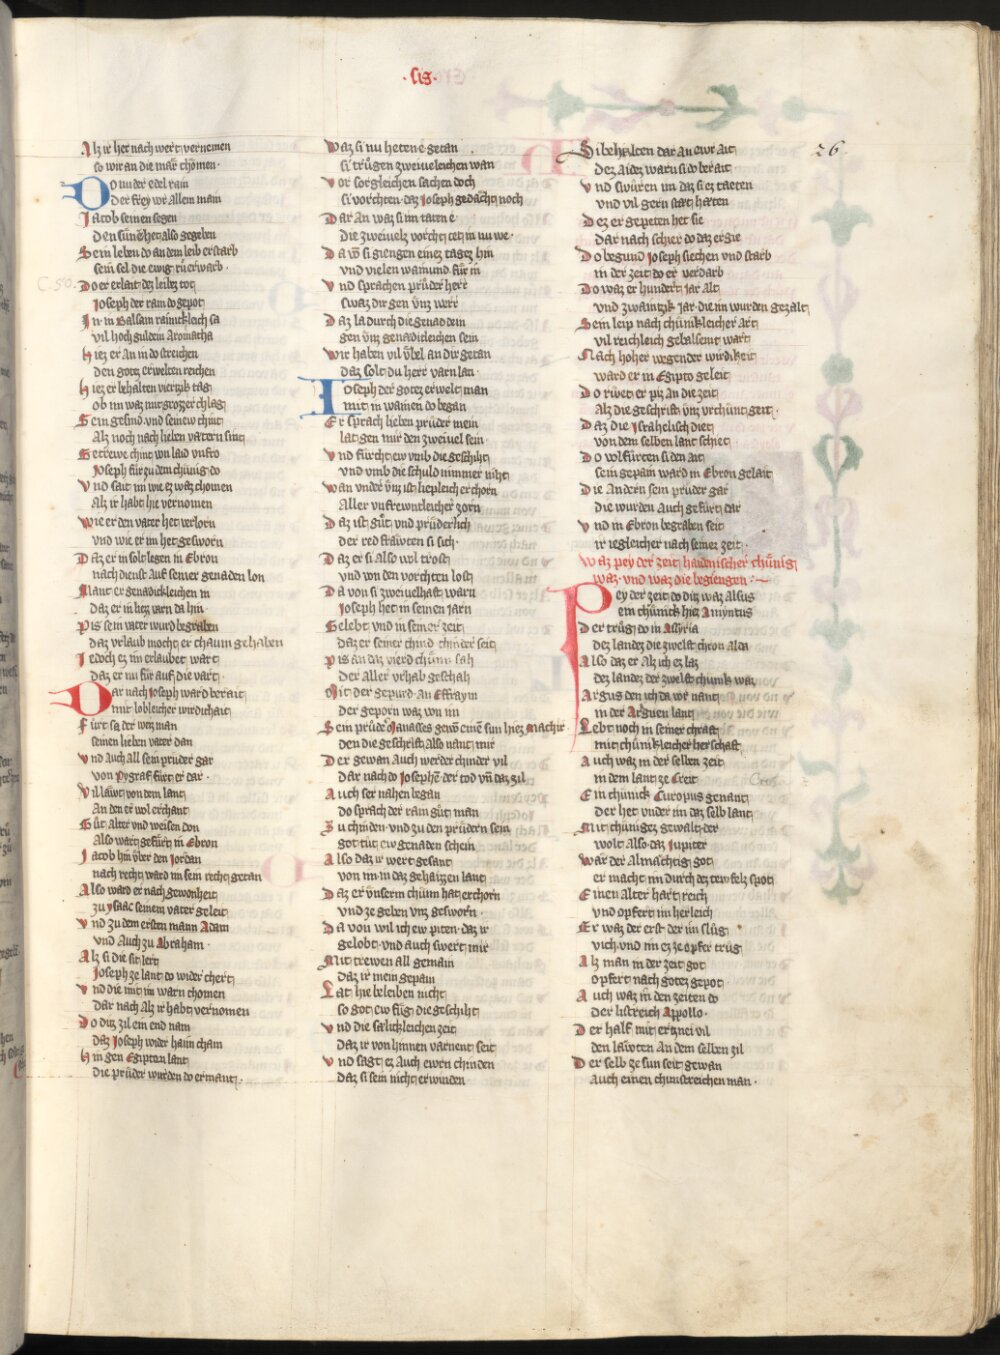 ·sis·
26
Alz ir her nach wert vernemen
so wir an die mær chomen·
Do nu der edel rain
Der frey vor allem main
Jacob seinen segen
den sünen het also gegeben
Sein leben do an dem leib erstarb
sein sel die ewig rů erwarb·
Do er erlait dez leibez tot
Joseph der rain do gepot
In in Balsam rainickleich sa
vil hoch guldein Aromatha
Hiez er An in do streichen
den gotez erwelten reichen
Hiez er behalten viertzik tag
ob im waz mit grozzer chlag
Sein gesind vnd seinew chint
Alz noch nach lieben vatern sint
Getrewe chint von laid vnfro
Joseph für zu dem chünig do
Vnd sait im wie ez waz chomen
Alz ir habt hie vernomen
Wie er den vater het verlorn
vnd wie er im het gesworn
Daz er in solt legen in Ebron
nach dienst Auf seiner genaden lon
Mant er genadickleichen in
daz er in liez varn da hin
Pis sein vater wurd begraben
daz vrlaub mocht er chaum gehaben
Jedoch ez im erlaubet wart
daz er nu für auf die vart·
Dar nach Joseph ward berait
mit lobleicher wirdichait
Fürt sa der wez man
seinen lieben vater dan
Vnd Auch all sein prüder gar
von Pygraf fürt er dar·
Vil läwt von dem lant
An den er wol erchant
Gůt Alter vnd weisen don
Also wart gefürt in Ebron
Jacob hin vber den Jordan
nach recht ward im sein recht getan
Also ward er nach gewonheit
zu ysaac seinem vater geleit
Vnd zu dem ersten mann Adam
vnd Auch zu Abraham·
Alz si die sit lert
Joseph ze lant do wider chert
Vnd die mit im warn chomen
dar nach Alz ir habt vernomen
Do ditz zil ein end nam
daz Joseph wider haim cham
Hin gen Egipten lant
die prüder wurden do ermant·
Waz si nu heten e getan
si trůgen zweiueleichen wan
Vor sorgleichen sachen doch
si vorchten daz Joseph gedächt noch
Dar An waz si im taten e
Die zweiuelz vorcht tet in nu we·
Da von si giengen einez tagez hin
vnd vielen wainund für in
Vnd sprachen prüder herr
swaz dir gen vnz werr
Daz la durch die genad dein
gen vnz genadicleichen sein
Wir haben vil vbel an dir getan
daz solt du herr varn lan·
Joseph der gotez erwelt man
mit in wainen do began
Er sprach lieben prüder mein
lat gen mir den zweiuel sein·
Vnd fürcht ew vmb die geschiht
vnd vmb die schuld nimmer niht
Wan vnder vnz ist liepleich erchorn
Aller vnfrewntleicher zorn
Daz ist gůt vnd prüderlich
der red fräwten si sich·
Daz er si Also wol trost
vnd von den vorchten lost
Da von si zweiuelhaft warn
Joseph het in seinen jarn
Gelebt vnd in seiner zeit
daz er seiner chind chinder seit
Pis an daz vierd chünn sah
der Aller vrhab geschah
Mit der gepurd An Effraym
der geporn waz von im
Sein prüder Manasses gewon einen sun hiez Machir
den die geschrift Also nant mir
Der gewan Auch werder chinder vil
dar nach do Josephen der tod vnd daz zil
Auch ser nahen began
do sprach der rain gůt man
Zu chinden vnd zu den prüdern sein
got tüt ew genaden schein
Also daz ir wert gesant
von im in daz gehaizzen lant
Daz er vnserm chünn hat erchorn
vnd ze geben vnz gesworn·
Da von wil ich ew piten daz ir
gelobt vnd auch swert mir
Mit trewen all gemain
daz ir mein gepain
Lat hie beleiben nicht
so got ew fügt die geschiht
Vnd die sælickleichen zeit
daz ir von hinnen varnent seit
Vnd sagt ez Auch ewrn chinden
daz si sein nicht erwinden
Si behielten dar an ewr ait
dez Aidez warn si do berait
Vnd swůren im daz si ez taeten
vnd vil gern stæt hæten
Dez er gepeten het sie
dar nach schier do daz ergie
Do begund Joseph siechen vnd starb
in der zeit do er verdarb
Do waz er hundert jar alt
vnd zwaintzik jar die im wurden gezalt
Sein leip nach chünkleicher art
vil reichleich gebalsemt wart
Nach hoher wegender wirdikeit
ward er in Egipto geleit
Do rüwet er piz an die zeit
Alz die geschrift vnz vrchünt geit·
Daz die Israhelisch diet
von dem selben lant schiet
Do volfürten si den ait
sein gepain ward in Ebron gelait
Die Andern sein prüder gar
die wurden Auch gefürt dar
Vnd in Ebron begraben seit
ir iegleicher nach seiner zeit·
Waz pey der zeit haidenischer chünig
waz· vnd waz die begiengen·
Pey der zeit do ditz waz alsus
ein chünick hiez Amyntus
Der trůg do in Assyria
dez landez die zwelft chron alda
Also daz er Alz ich ez laz
dez landez der zwelft chünik waz
Argus den ich da vor nant
in der Arguen lant
Lebt noch in seiner chraft
mit chünikleicher herschaft
Auch waz in der selben zeit
in dem lant ze Creit
Ein chünick Europus genant
der het vnder im daz selb lant
Mit chünigez gewalt der
wolt Also daz Jupiter
Wær der Almæchtig got
er macht im durch dez tewfelz spot
Einen Alter hart reich
vnd opfert im herleich
Er waz der erst der im slůg
vich vnd im ez ze opfer trůg
Alz man in der zeit got
opfert nach gotez gepot
Auch waz in den zeiten do
der listreich Appollo·
Der half mit ertznei vil
den läwten An dem selben zil
Der selb ze sun seit gewan
Auch einen chunstreichen man·